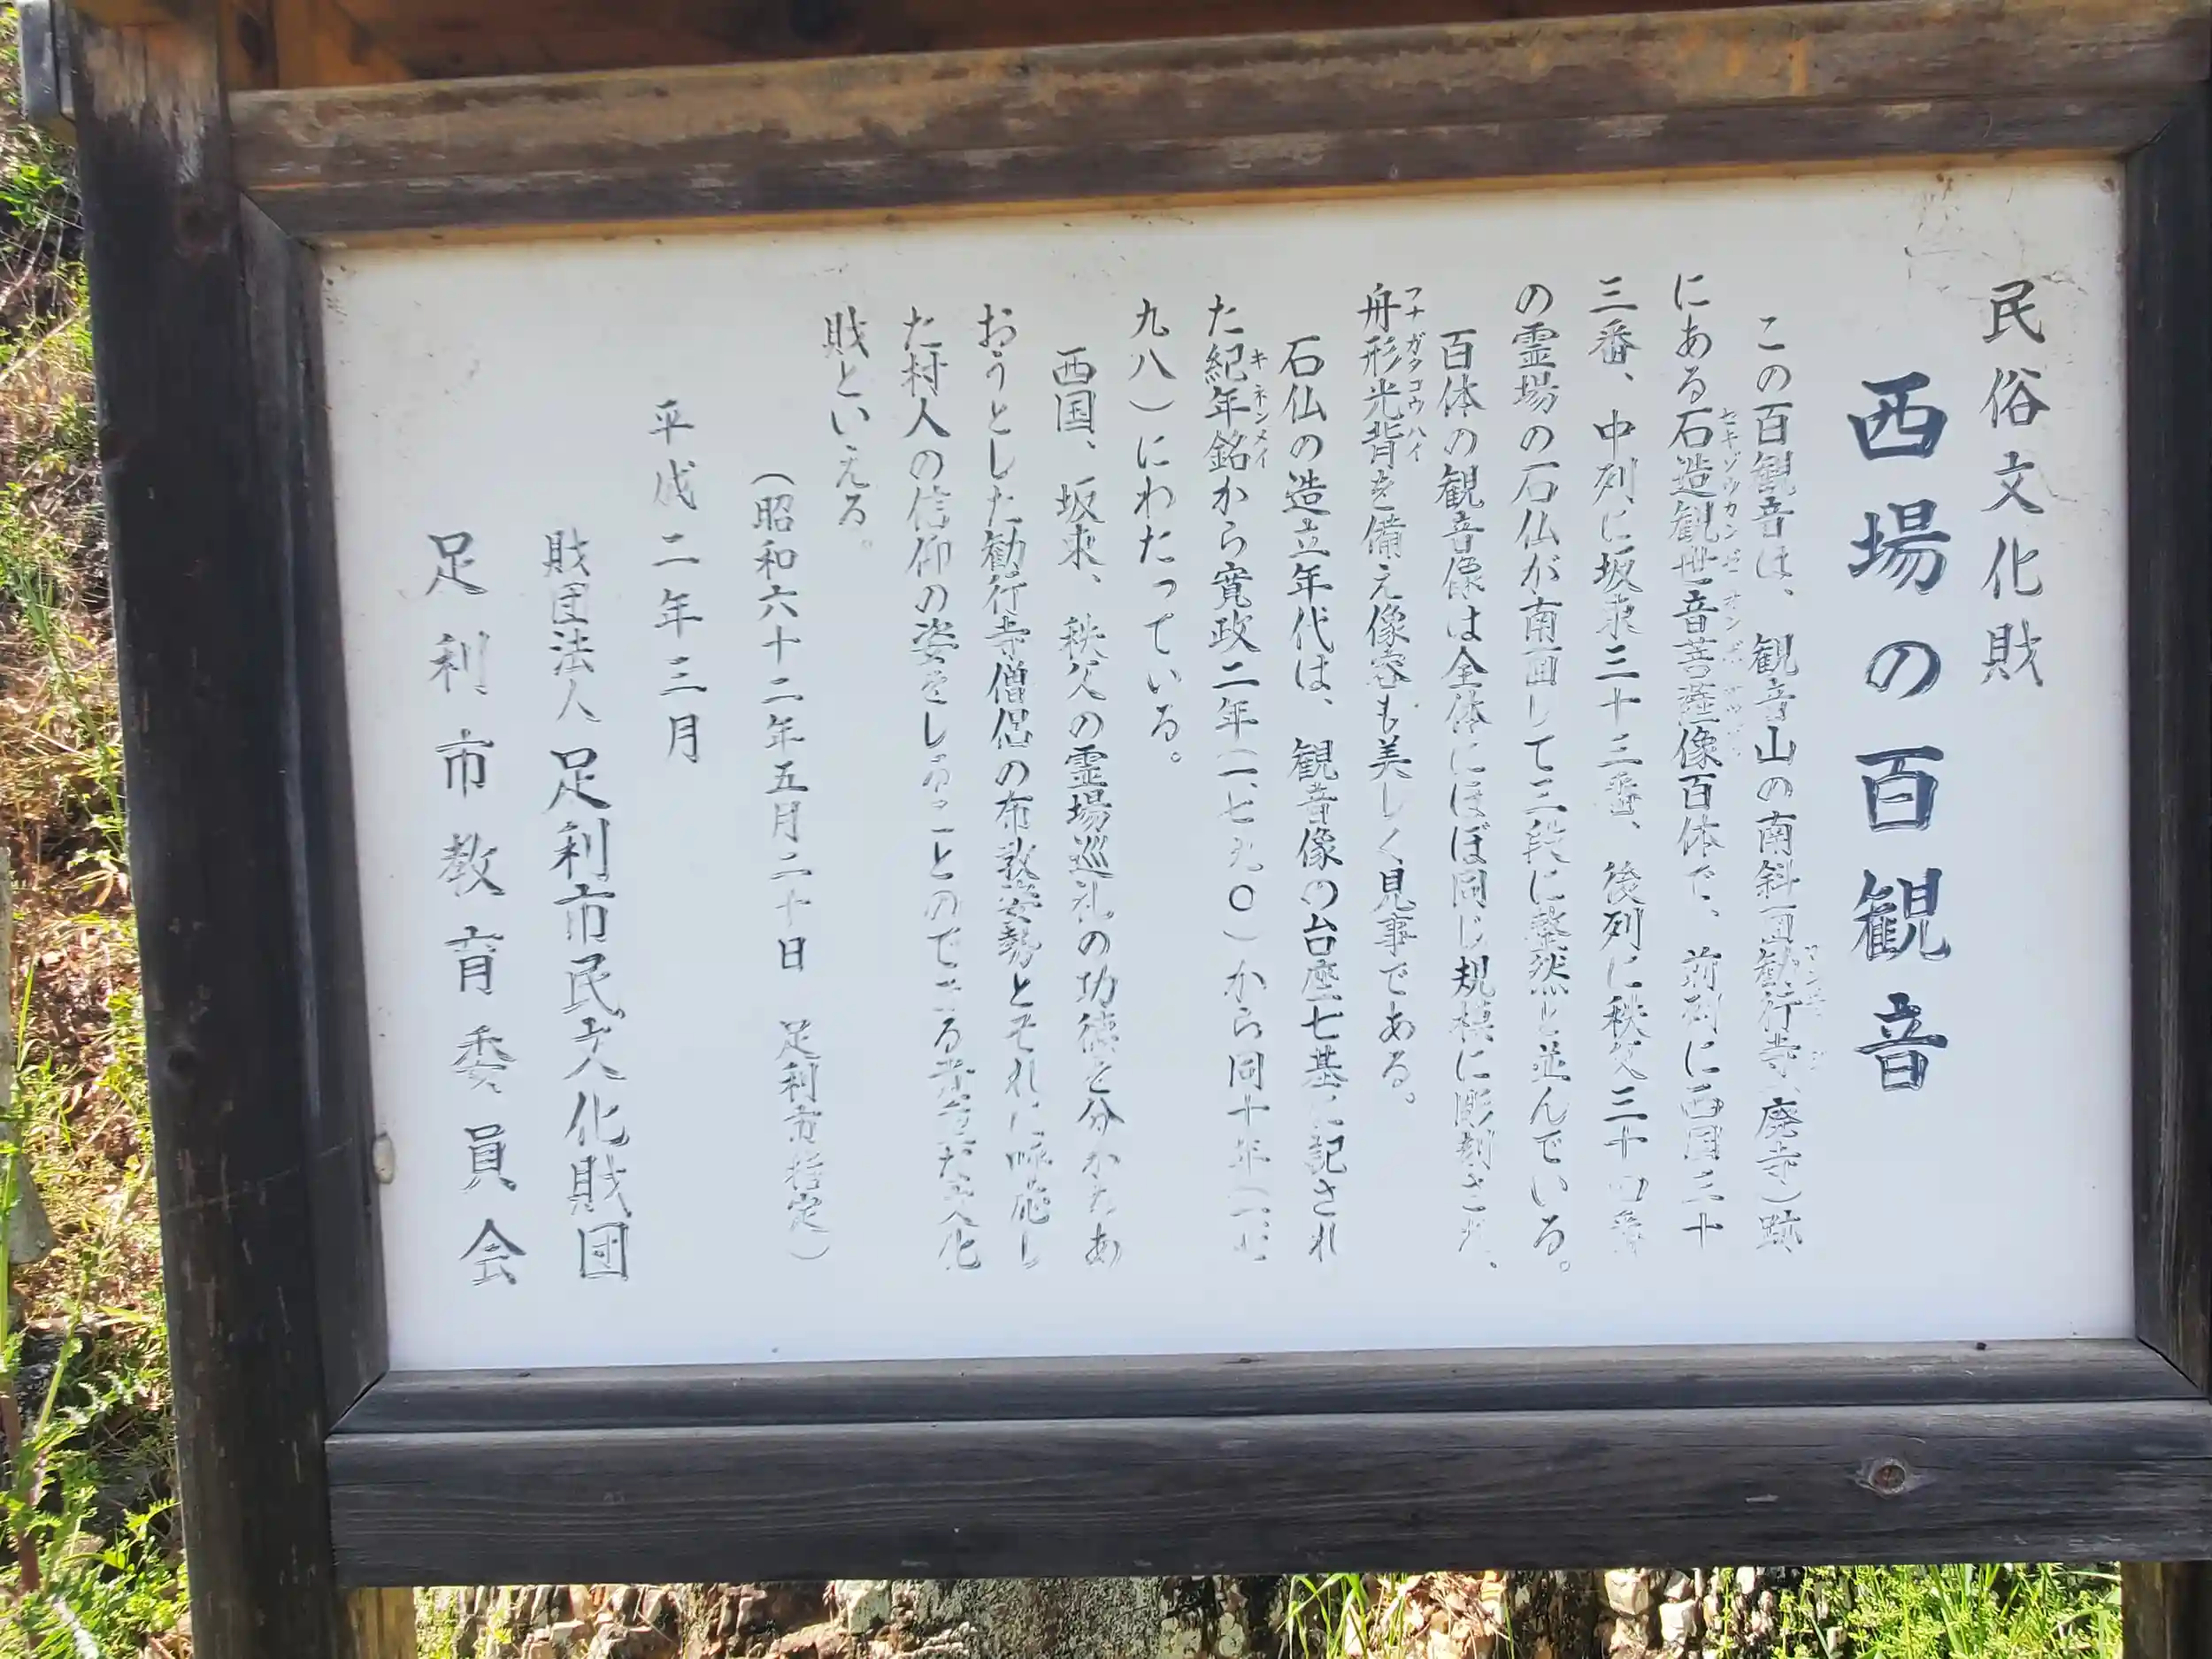 民俗文化財
西場の百観音
この百観音は、観音山の南斜面勧行寺(廃寺)跡
にある石造観世音菩薩像百体で、前列に西国三十
三番、中列に坂東三十三番、後列に秩父三十四番
の霊場の石仏が南面して三段に整然と並んでいる。
百体の観音像は全体にほぼ同じ規模に彫刻され、
舟形光背を備え像容も美しく見事である。
石仏の造立年代は、観音像の台座七基に記され
た紀年銘から寛政二年(一七九〇)から同十年(一七
九八)にわたっている。
西国、坂東、秩父の霊場巡礼の功徳を分かちあ
おうとした勧行寺僧侶の布教姿勢とそれに呼応し
た村人の信仰の姿をしることのできる貴重な文化
財といえる。
(昭和六十二年五月二十日 足利市指定)
平成二年三月
財団法人 足利市民文化財団
足利市教育委員会